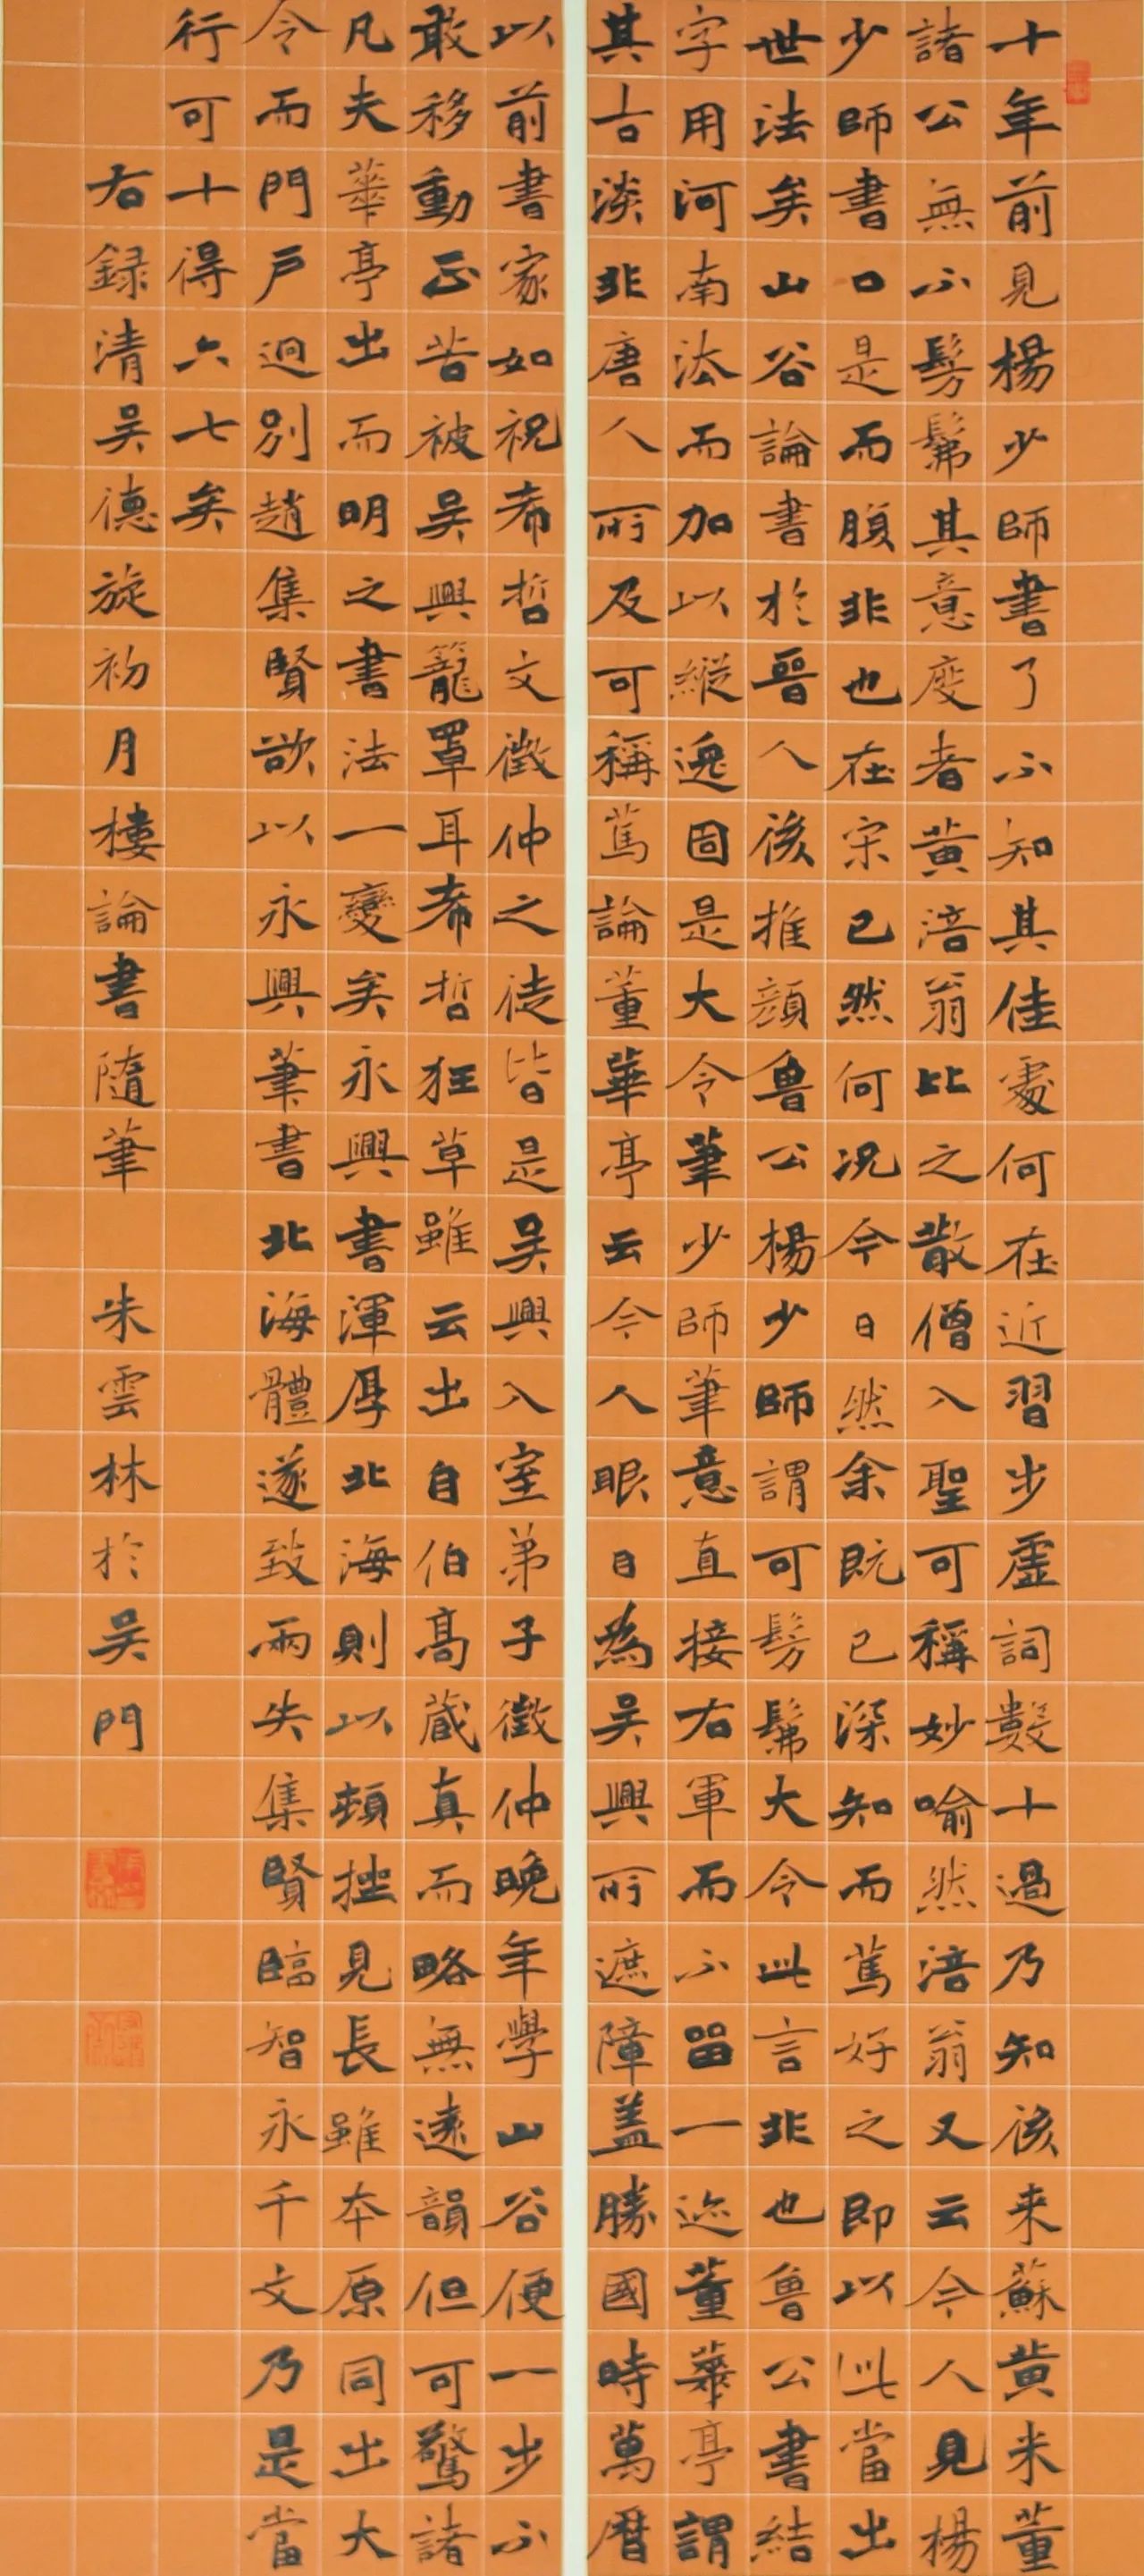 十年前見楊少師書了不知其佳處何在近習步虛詞數十過乃知後来蘇黃米董
諸公無不髣髴其意度者黃涪翁比之散僧入聖可稱妙喻然涪翁又云今人見楊
少師書口是而腹非也在宋已然何況今日然余既已深知而篤好之即以此當出
世法矣山谷論書於晉人後推顔魯公楊少師謂可髣髴大令此言非也魯公書結
字用河南法而加以縱逸固是大令筆少師筆意直接右軍而不留一迹董華亭謂
其古淡非唐人所及可稱篤論董華亭云今人眼目為吴興所遮障蓋勝國時萬曆
以前書家如祝希哲文徵仲之徒皆是吴興入室弟子徵仲晚年學山谷便一步不
敢移動正苦被吴興籠罩耳希哲狂草雖云出自伯高藏真而略無遠韻但可驚諸
凡夫華亭出而明之書法一變矣永興書渾厚北海則以頓挫見長雖本原同出大
令而門戶迥別趙集賢欲以永興筆書北海體遂致兩失集賢臨智永千文乃是當
行可十得六七矣
右録清吴德旋初月樓論書隨筆 朱雲林於吴門